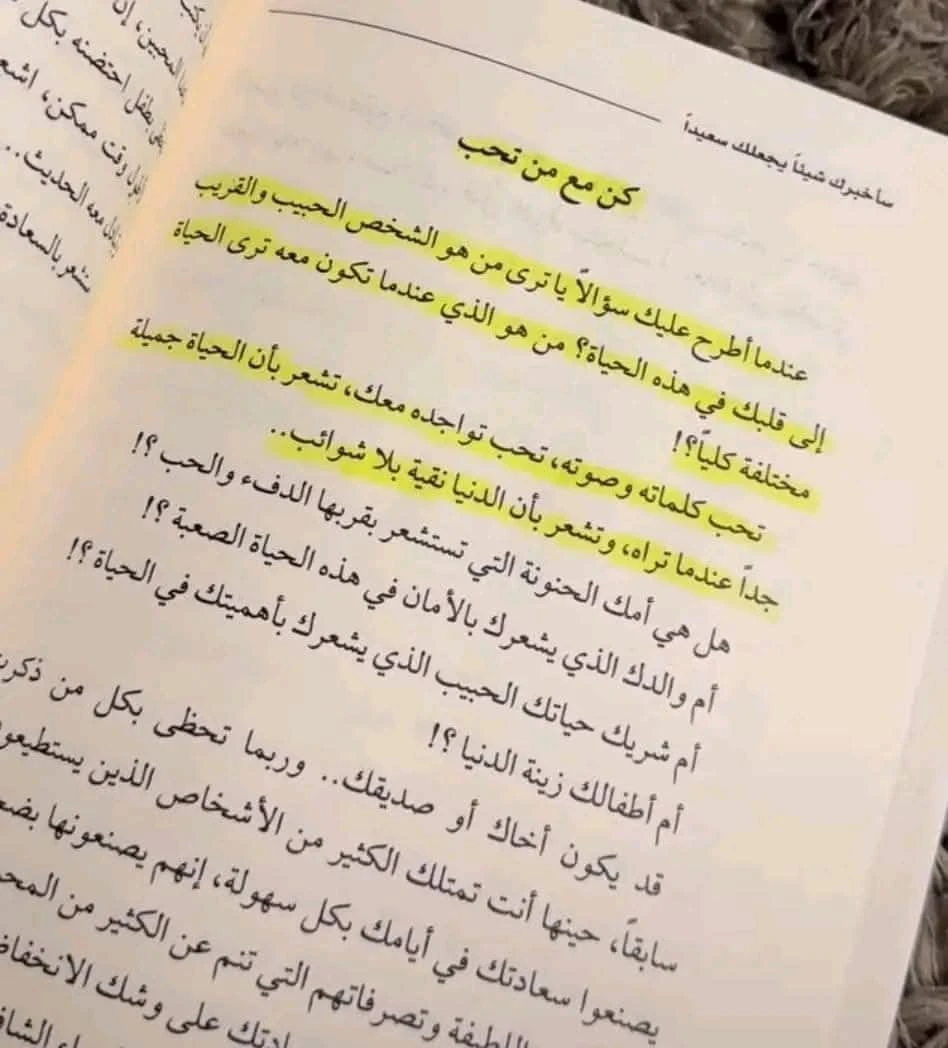 سأخبرك شيئاً يجعلك سعيداً
كن مع من تحب
عندما أطرح عليك سؤالاً يا ترى من هو الشخص الحبيب والقريب
إلى قلبك في هذه الحياة؟ من هو الذي عندما تكون معه ترى الحياة
مختلفة كلياً؟!
تحب كلماته وصوته، تحب تواجده معك، تشعر بأن الحياة جميلة
جداً عندما تراه، وتشعر بأن الدنيا نقية بلا شوائب..
هل هي أمك الحنونة التي تستشعر بقربها الدفء والحب؟!
أم والدك الذي يشعرك بالأمان في هذه الحياة الصعبة؟!
أم شريك حياتك الحبيب الذي يشعرك بأهميتك في الحياة؟!
أم أطفالك زينة الدنيا؟!
قد يكون أخاك أو صديقك.. وربما تحظى بكل من
سابقاً، حينها أنت تمتلك الكثير من الأشخاص الذين
يصنعوا سعادتك في أيامك بكل سهولة، إنهم يصنعونها
اللطيفة وتصرفاتهم التي تنم عن الكثير من
على وشك
المحبين، إن
احتضنه بكل
وقت ممكن،
معه الحديث..
بالسعادة